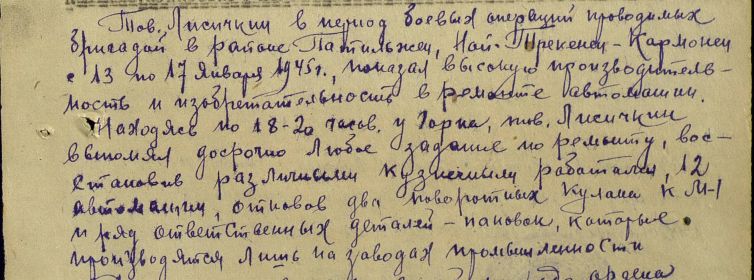 Тов. Лисичкин в период боевых операций проводимых
бригадой в районе Патильжен, Ной-Трекенен-Кармонен
с 13 по 17 января 1945г., показал высокую производитель-
ность и изобретательность в ремонте автомашин.
Находясь по 18-20 часов. у Горна, тов. Лисичкин
выполнял досрочно любое задание по ремонту, вос-
становив различными кузнечными работами, 12
автомашин, отковав два поворотных кулака к М-1
и ряд ответственных деталей - паковок, которые
производятся лишь на заводах промышленности
ордена